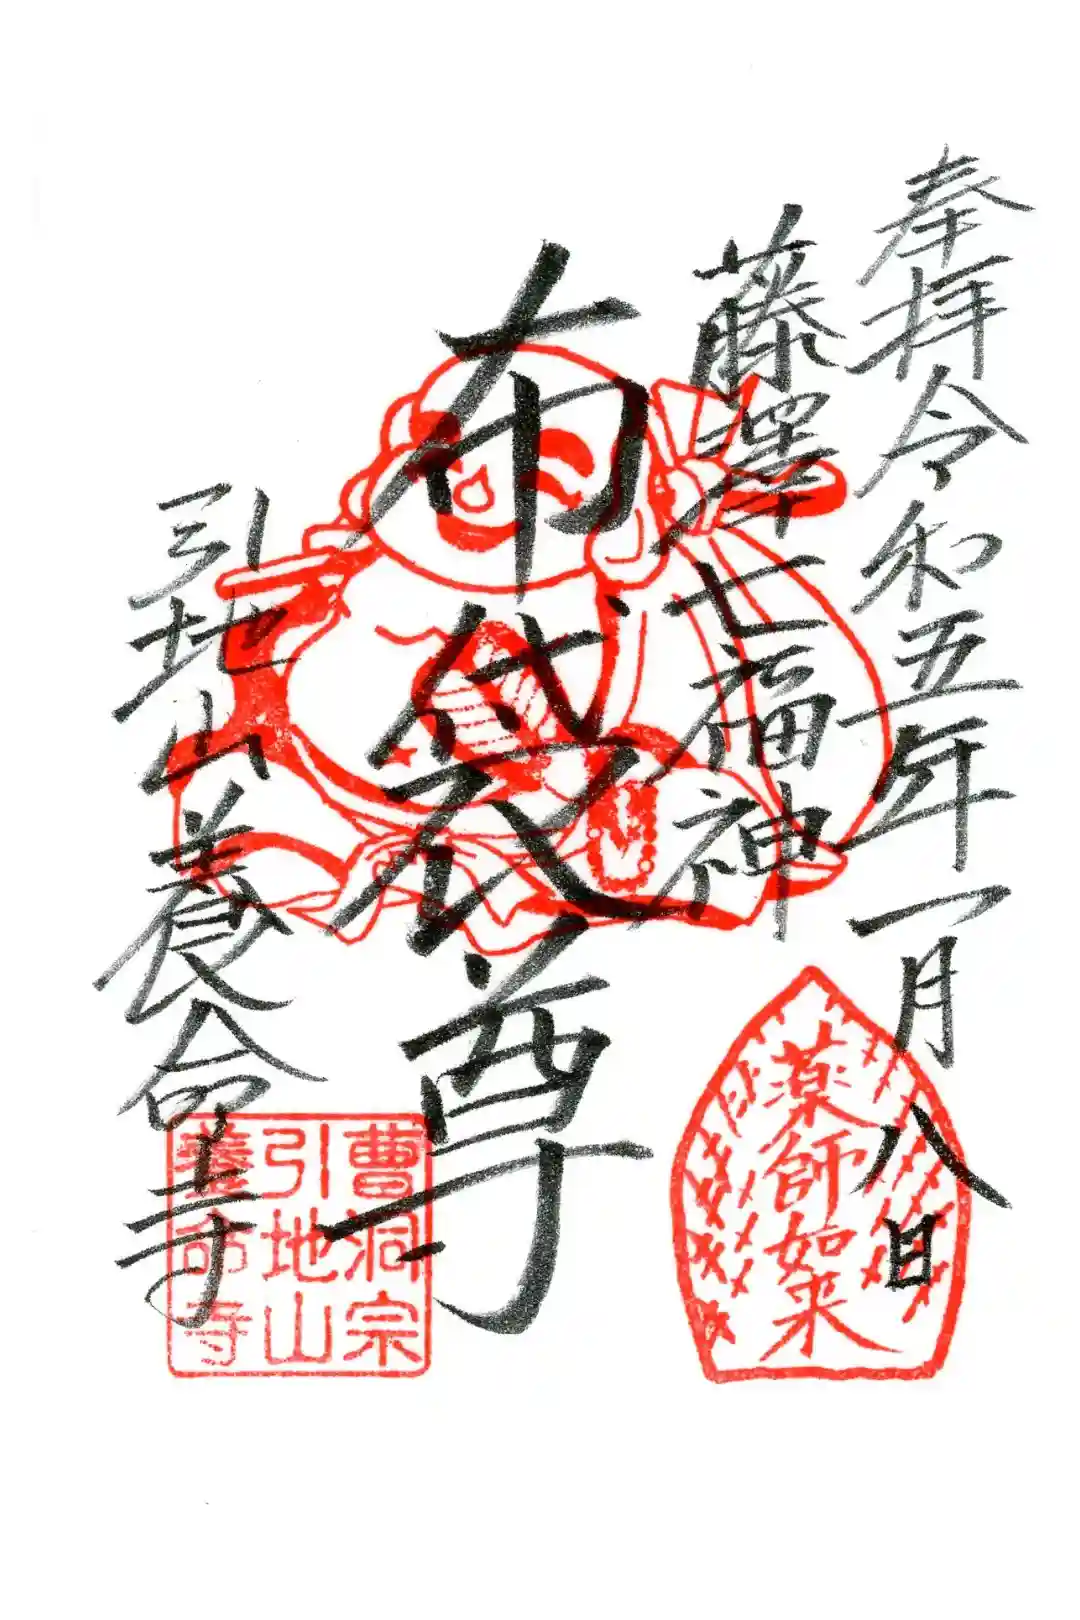 奉拝令和五年一月八日
藤澤七福神
布袋尊
引地山養命寺
薬師如来
曹洞宗
引地山
養命寺